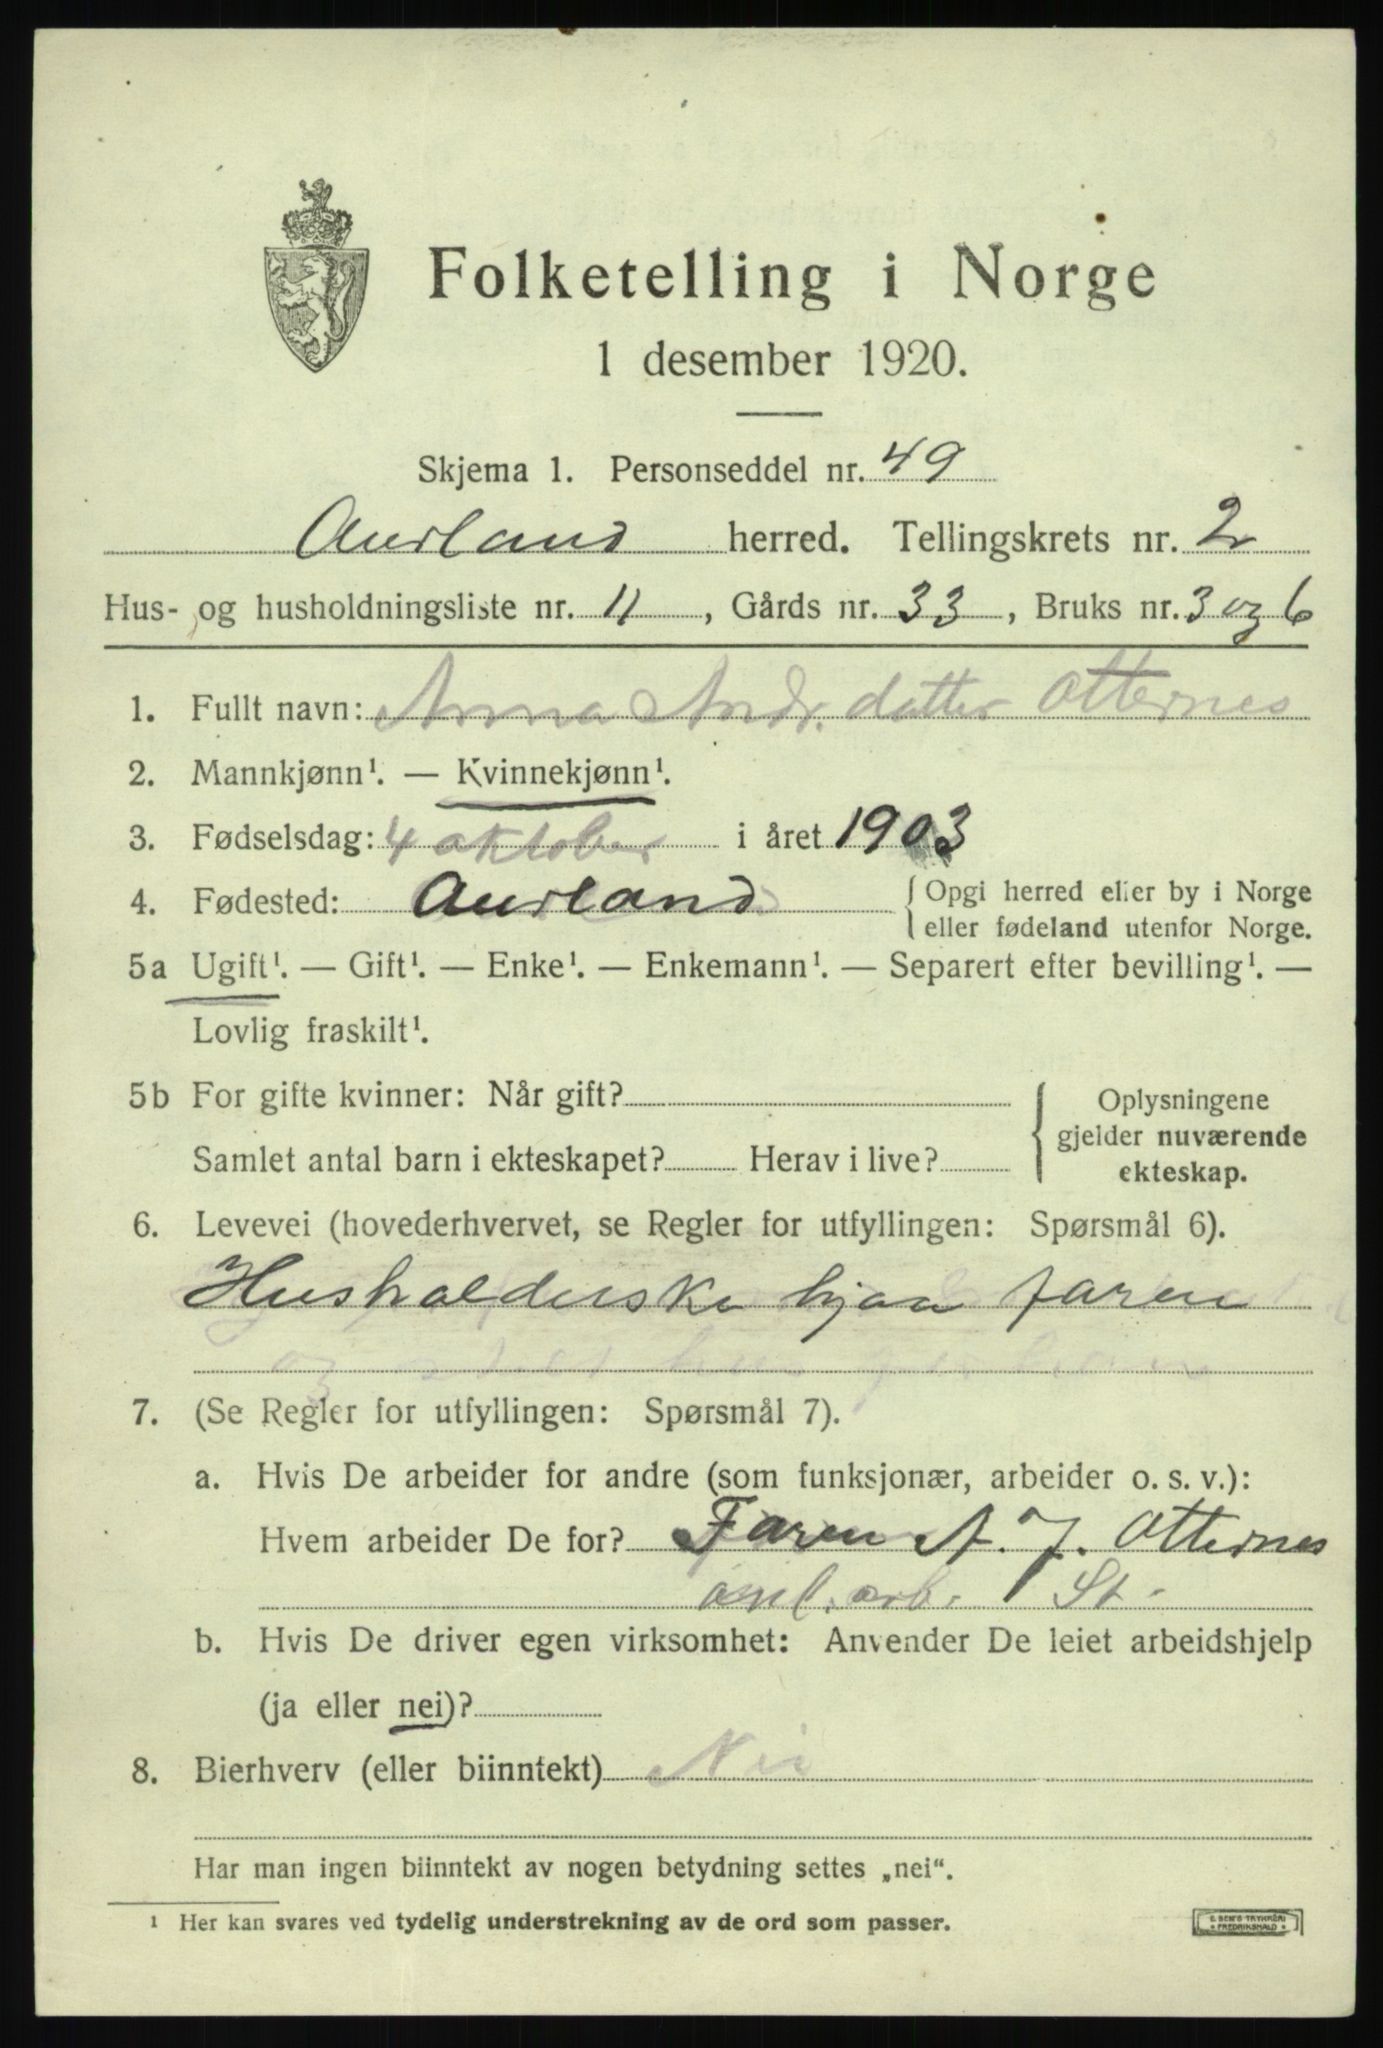 Folketelling i Norge
1 desember 1920.
Skjema 1. Personseddel nr. 49
Aurland herred. Tellingskrets nr. 2
Hus- og husholdningsliste nr. 11, Gårds nr. 33, Bruks nr. 3 og 6
1. Fullt navn: Anna Andr. datter Otternes
2. Mannkjønn¹. — Kvinnekjønn¹.
3. Fødselsdag: 4 oktober i året 1903
4. Fødested: Aurland { Opgi herred eller by i Norge
eller fødeland utenfor Norge.
5a Ugift¹. — Gift¹. — Enke¹. — Enkemann¹. — Separert efter bevilling¹. —
Lovlig fraskilt¹.
5b For gifte kvinner: Når gift?
Samlet antal barn i ekteskapet? Herav i live?
{ Oplysningene
gjelder nuværende
ekteskap.
6. Levevei (hovederhvervet, se Regler for utfyllingen: Spørsmål 6).
Husholderske hjaa faren
og
7. (Se Regler for utfyllingen: Spørsmål 7).
a. Hvis De arbeider for andre (som funksjonær, arbeider o. s. v.):
Hvem arbeider De for? Faren A. J. Otternes
arb. St.
b. Hvis De driver egen virksomhet: Anvender De leiet arbeidshjelp
(ja eller nei)?
8. Bierhverv (eller biinntekt) Nei
Har man ingen biinntekt av nogen betydning settes „nei“.
¹ Her kan svares ved tydelig understrekning av de ord som passer.
E. SEM'S TRYKKERI
FREDRIKSHALD